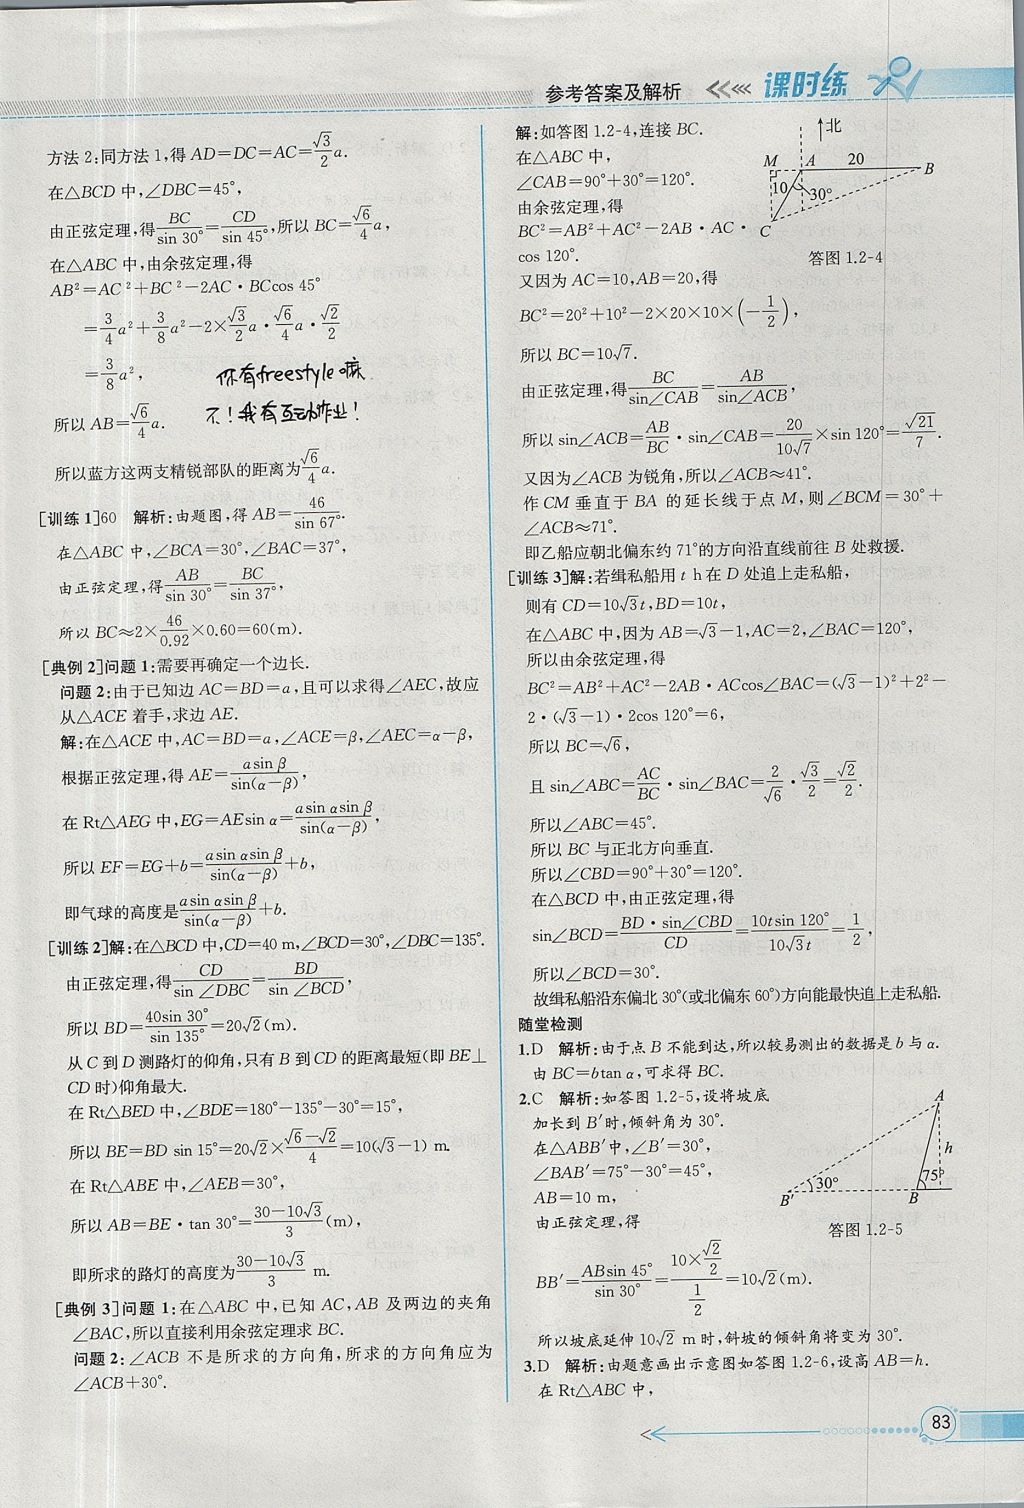 参考答案及解析 课时练
方法2:同方法1,得AD=DC=AC=$\frac{\sqrt{3}}{2}$a.
在△BCD中,∠DBC=45°,
由正弦定理,得$\frac{BC}{\sin 30°}$=$\frac{CD}{\sin 45°}$,所以BC=$\frac{\sqrt{6}}{4}$a,
在△ABC中,由余弦定理,得
AB²=AC²+BC²-2AC·BCcos 45°
=$\frac{3}{4}$a²+$\frac{3}{8}$a²-2×$\frac{\sqrt{3}}{2}$a·$\frac{\sqrt{6}}{4}$a·$\frac{\sqrt{2}}{2}$
=$\frac{3}{8}$a²,
你有freestyle嘛
所以AB=$\frac{\sqrt{6}}{4}$a.
不！我有互动作业！
所以蓝方这两支精锐部队的距离为$\frac{\sqrt{6}}{4}$a.
[训练1]60 解析:由题图,得AB=$\frac{46}{\sin 67°}$.
在△ABC中,∠BCA=30°,∠BAC=37°,
由正弦定理,得$\frac{AB}{\sin 30°}$=$\frac{BC}{\sin 37°}$,
所以BC≈2×$\frac{46}{0.92}$×0.60=60(m).
[典例2]问题1:需要再确定一个边长.
问题2:由于已知边AC=BD=a,且可以求得∠AEC,故应
从△ACE着手,求边AE.
解:在△ACE中,AC=BD=a,∠ACE=β,∠AEC=α-β,
根据正弦定理,得AE=$\frac{a\sin β}{\sin(α-β)}$,
在Rt△AEG中,EG=AEsin α=$\frac{a\sin α\sin β}{\sin(α-β)}$,
所以EF=EG+b=$\frac{a\sin α\sin β}{\sin(α-β)}$+b,
即气球的高度是$\frac{a\sin α\sin β}{\sin(α-β)}$+b.
[训练2]解:在△BCD中,CD=40 m,∠BCD=30°,∠DBC=135°.
由正弦定理,得$\frac{CD}{\sin ∠DBC}$=$\frac{BD}{\sin ∠BCD}$,
所以BD=$\frac{40\sin 30°}{\sin 135°}$=20$\sqrt{2}$(m).
从C到D测路灯的仰角,只有B到CD的距离最短(即BE⊥
CD时)仰角最大.
在Rt△BED中,∠BDE=180°-135°-30°=15°,
所以BE=BD sin 15°=20$\sqrt{2}$×$\frac{\sqrt{6}-\sqrt{2}}{4}$=10($\sqrt{3}$-1) m.
在Rt△ABE中,∠AEB=30°,
所以AB=BE·tan 30°=$\frac{30-10\sqrt{3}}{3}$(m),
即所求的路灯的高度为$\frac{30-10\sqrt{3}}{3}$ m.
[典例3]问题1:在△ABC中,已知AC,AB及两边的夹角
∠BAC,所以直接利用余弦定理求BC.
问题2:∠ACB不是所求的方向角,所求的方向角应为
∠ACB+30°.
解:如答图1.2-4,连接BC.
在△ABC中,
∠CAB=90°+30°=120°.
由余弦定理,得
BC²=AB²+AC²-2AB·AC·
cos 120°.
北
M A 20 B
10 30°
C
答图1.2-4
又因为AC=10,AB=20,得
BC²=20²+10²-2×20×10×(-$\frac{1}{2}$),
所以BC=10$\sqrt{7}$.
由正弦定理,得$\frac{BC}{\sin∠CAB}$=$\frac{AB}{\sin∠ACB}$,
所以sin∠ACB=$\frac{AB}{BC}$·sin∠CAB=$\frac{20}{10\sqrt{7}}$×sin 120°=$\frac{\sqrt{21}}{7}$.
又因为∠ACB为锐角,所以∠ACB≈41°.
作CM垂直于BA的延长线于点M,则∠BCM=30°+
∠ACB≈71°.
即乙船应朝北偏东约71°的方向沿直线前往B处救援.
[训练3]解:若缉私船用t h在D处追上走私船,
则有CD=10$\sqrt{3}$t,BD=10t,
在△ABC中,因为AB=$\sqrt{3}$-1,AC=2,∠BAC=120°,
所以由余弦定理,得
BC²=AB²+AC²-2AB·ACcos∠BAC=($\sqrt{3}$-1)²+2²-
2·($\sqrt{3}$-1)·2cos 120°=6,
所以BC=$\sqrt{6}$,
且sin∠ABC=$\frac{AC}{BC}$·sin∠BAC=$\frac{2}{\sqrt{6}}$·$\frac{\sqrt{3}}{2}$=$\frac{\sqrt{2}}{2}$.
所以∠ABC=45°.
所以BC与正北方向垂直.
所以∠CBD=90°+30°=120°.
在△BCD中,由正弦定理,得
sin∠BCD=$\frac{BD·\sin∠CBD}{CD}$=$\frac{10t\sin 120°}{10\sqrt{3}t}$=$\frac{1}{2}$,
所以∠BCD=30°.
故缉私船沿东偏北30°(或北偏东60°)方向能最快追上走私船.
随堂检测
1.D 解析:由于点B不能到达,所以较易测出的数据是b与α.
由BC=btan α,可求得BC.
2.C 解析:如答图1.2-5,设将坡底
加长到B′时,倾斜角为30°.
在△ABB′中,∠B′=30°,
∠BAB′=75°-30°=45°,
AB=10 m,
由正弦定理,得
A
h
30° 75°
B′ B
答图1.2-5
BB′=$\frac{AB\sin 45°}{\sin 30°}$=$\frac{10×\frac{\sqrt{2}}{2}}{\frac{1}{2}}$=10$\sqrt{2}$(m).
所以坡底延伸10$\sqrt{2}$ m时,斜坡的倾斜角将变为30°.
3.D 解析:由题意画出示意图如答图1.2-6,设高AB=h.
在Rt△ABC中,
83